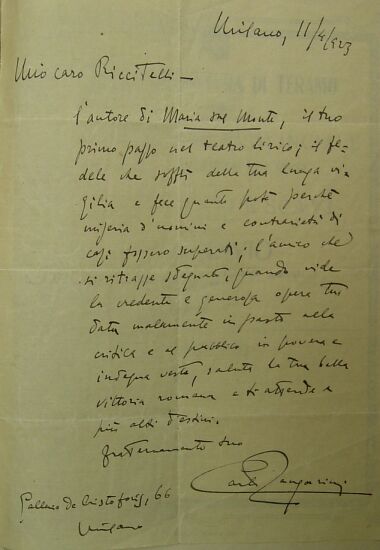 Milano, 11/4/923
Mio caro Riccitelli —
l'autore di Maria sul Monte, il tuo
primo passo nel teatro lirico; il fe-
dele che soffrì della tua lunga vi-
gilia e fece quanto poté perché
miseria d'uomini e contrarietà di
casi fossero superati; l'amico che
si ritrasse sdegnato, quando vide
la credente e generosa opera tua
data malamente in pasto alla
critica e al pubblico in povera e
indegna veste, saluta la tua bella
vittoria romana e ti attende a
più alti destini.
fraternamente tuo
Carlo Zangarini
Galleria De Cristoforis, 66
Milano